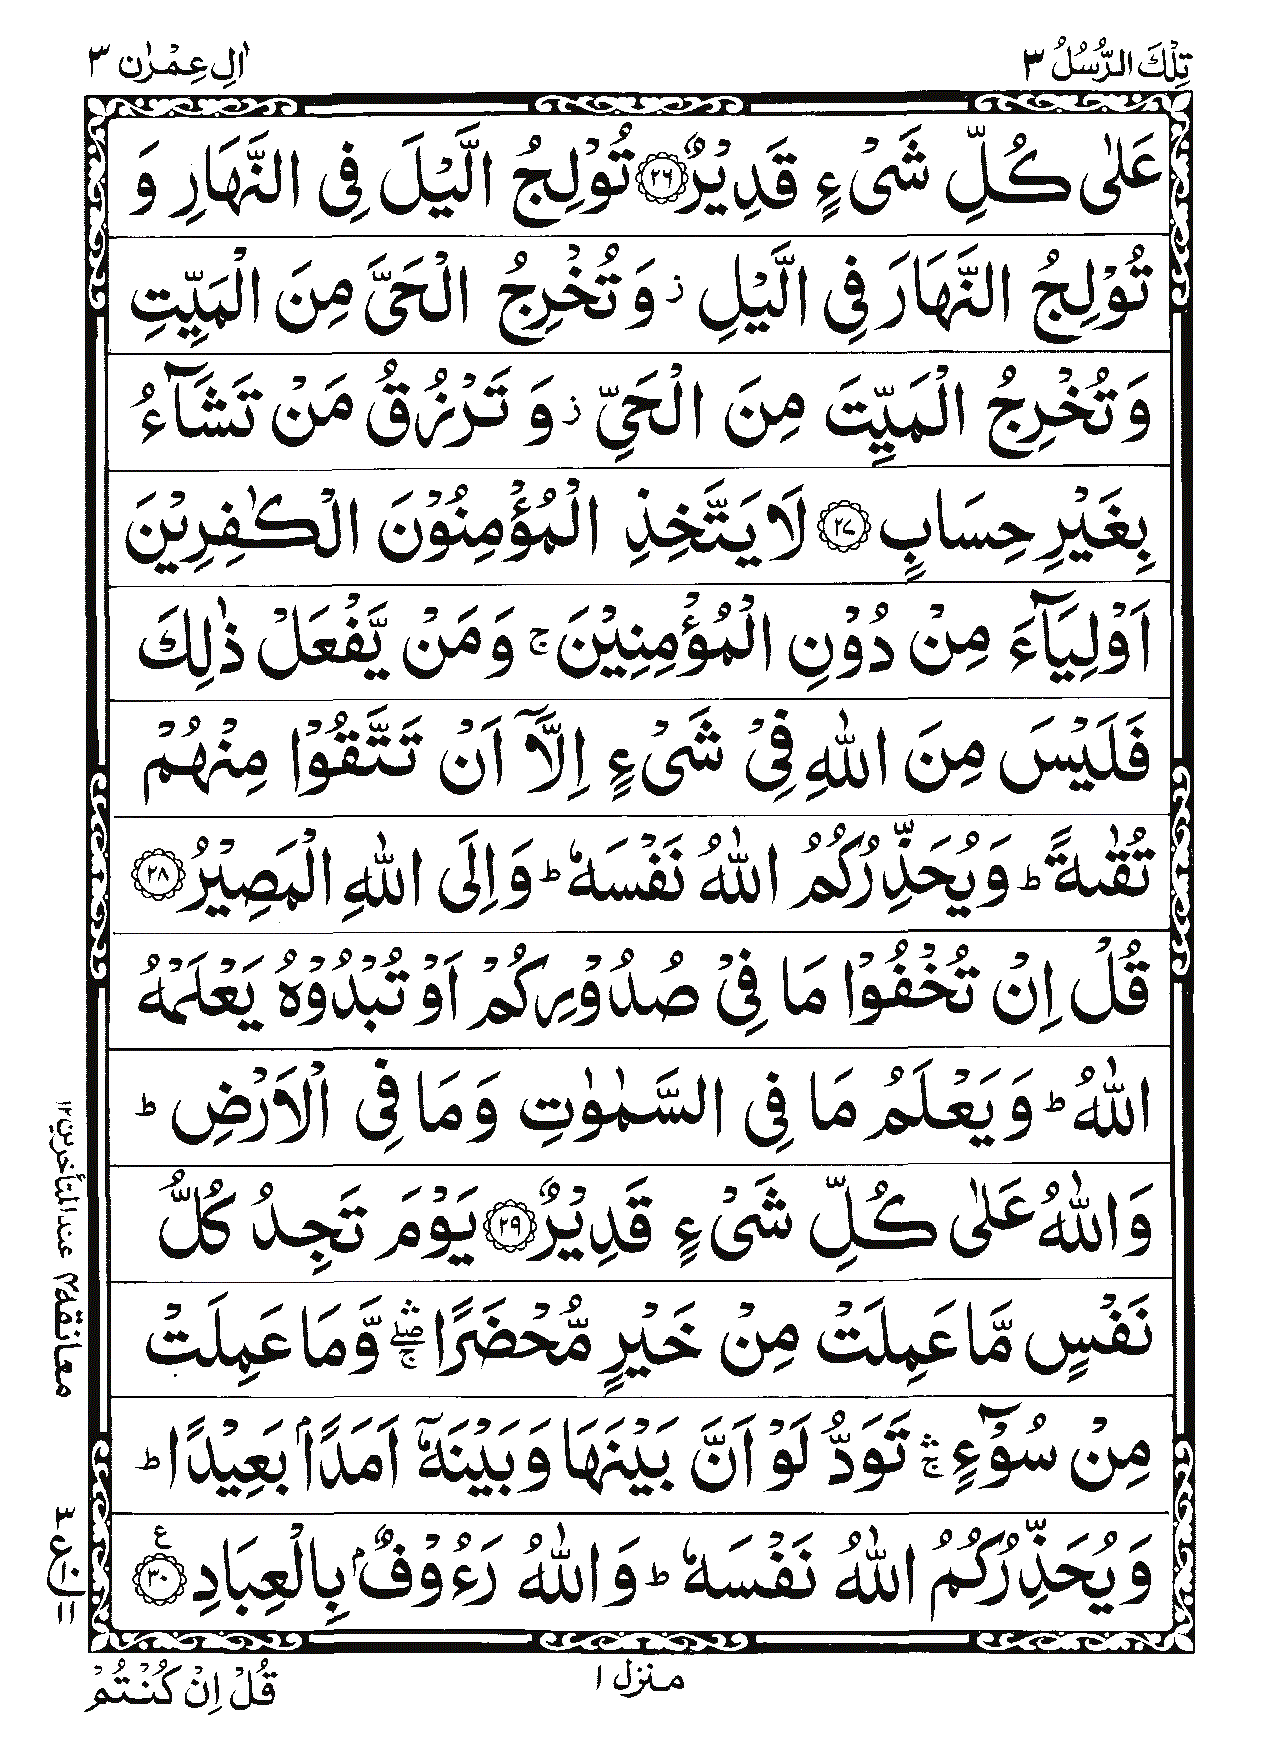 تِلْكَ الرُّسُلُ ٣
اٰلِ عِمْرٰن ٣
عَلٰى كُلِّ شَىْءٍ قَدِيْرٌ ﴿٢٦﴾ تُوْلِجُ الَّيْلَ فِى النَّهَارِ وَ
تُوْلِجُ النَّهَارَ فِى الَّيْلِ ز وَ تُخْرِجُ الْحَىَّ مِنَ الْمَيِّتِ
وَ تُخْرِجُ الْمَيِّتَ مِنَ الْحَىِّ ز وَ تَرْزُقُ مَنْ تَشَآءُ
بِغَيْرِ حِسَابٍ ﴿٢٧﴾ لَا يَتَّخِذِ الْمُؤْمِنُوْنَ الْكٰفِرِيْنَ
اَوْلِيَآءَ مِنْ دُوْنِ الْمُؤْمِنِيْنَ ج وَمَنْ يَّفْعَلْ ذٰلِكَ
فَلَيْسَ مِنَ اللّٰهِ فِىْ شَىْءٍ اِلَّآ اَنْ تَتَّقُوْا مِنْهُمْ
تُقٰىةً ط وَيُحَذِّرُكُمُ اللّٰهُ نَفْسَهٗ ط وَاِلَى اللّٰهِ الْمَصِيْرُ ﴿٢٨﴾
قُلْ اِنْ تُخْفُوْا مَا فِىْ صُدُوْرِكُمْ اَوْ تُبْدُوْهُ يَعْلَمْهُ
اللّٰهُ ط وَيَعْلَمُ مَا فِى السَّمٰوٰتِ وَمَا فِى الْاَرْضِ ط
وَاللّٰهُ عَلٰى كُلِّ شَىْءٍ قَدِيْرٌ ﴿٢٩﴾ يَوْمَ تَجِدُ كُلُّ
نَفْسٍ مَّا عَمِلَتْ مِنْ خَيْرٍ مُّحْضَرًا ۛۖۚ وَّمَا عَمِلَتْ
مِنْ سُوْٓءٍ ۛۚ تَوَدُّ لَوْ اَنَّ بَيْنَهَا وَبَيْنَهٗٓ اَمَدًاۢ بَعِيْدًا ط
وَيُحَذِّرُكُمُ اللّٰهُ نَفْسَهٗ ط وَاللّٰهُ رَءُوْفٌۢ بِالْعِبَادِ ﴿٣٠﴾ ع
معانقه ٢ عند المتأخرين ١٢
ع
١٠
١١
منزل ١
قُلْ اِنْ كُنْتُمْ